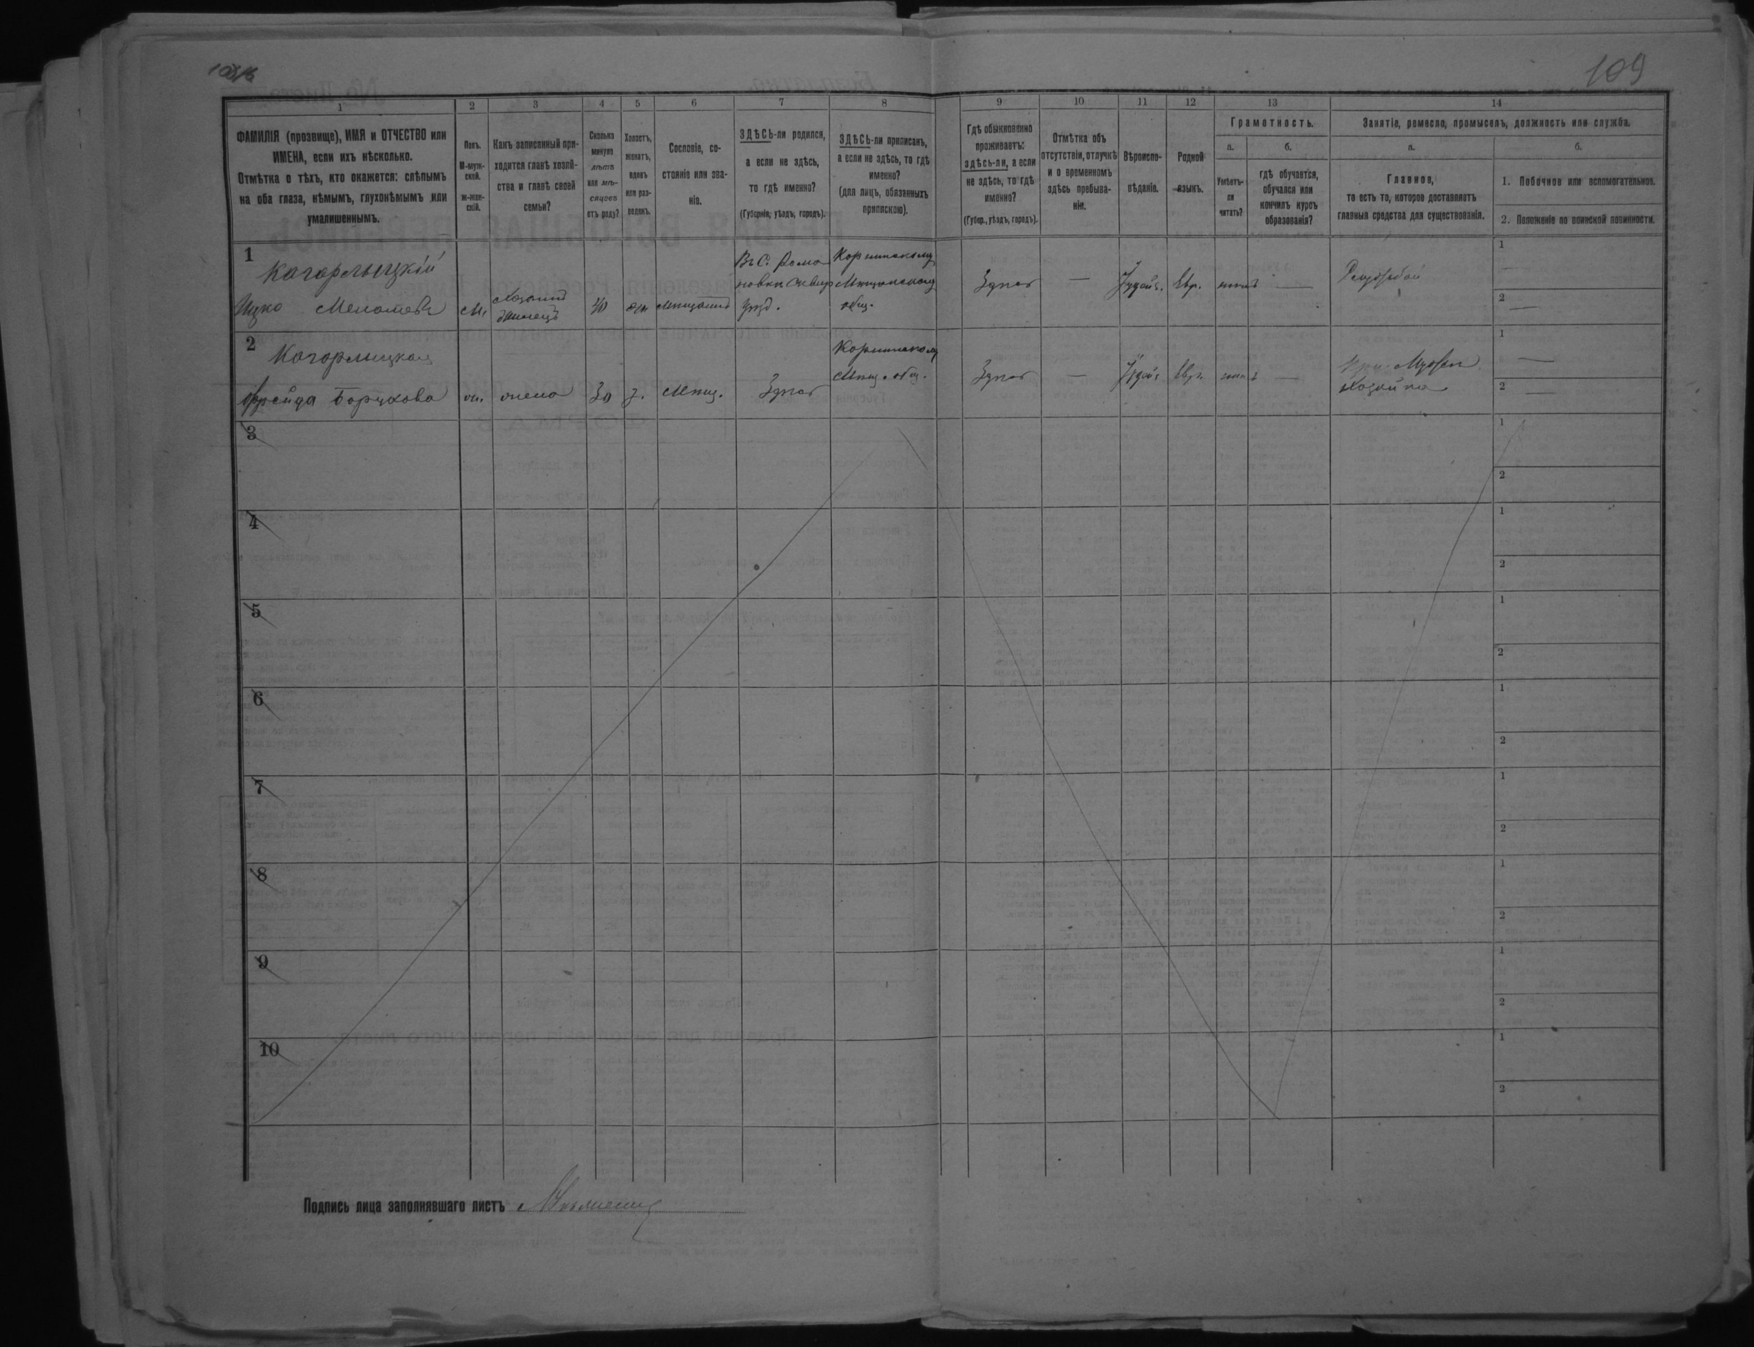 109
1
2
3
4
5
6
7
8
9
10
11
12
13
14
ФАМИЛІЯ (прозвище), ИМЯ и ОТЧЕСТВО или
ИМЕНА, если ихъ нѣсколько.
Отмѣтка о тѣхъ, кто окажется: слѣпымъ
на оба глаза, нѣмымъ, глухонѣмымъ или
умалишеннымъ.
Полъ.
М-муж-
ской.
ж-жен-
скій.
Какъ записанный при-
ходится главѣ хозяй-
ства и главѣ своей
семьи?
Сколько
минуло
лѣтъ
или мѣ-
сяцевъ
отъ роду?
Холостъ,
женатъ,
вдовъ
или раз-
веденъ.
Сословіе, со-
стояніе или зва-
ніе.
ЗДѢСЬ-ли родился,
а если не здѣсь,
то гдѣ именно?
(Губернія, уѣздъ, городъ).
ЗДѢСЬ-ли приписанъ,
а если не здѣсь, то гдѣ
именно?
(для лицъ, обязанныхъ
припискою).
Гдѣ обыкновенно
проживаетъ:
здѣсь-ли, а если
не здѣсь, то гдѣ
именно?
(Губер., уѣздъ, городъ).
Отмѣтка объ
отсутствіи, отлучкѣ
и о временномъ
здѣсь пребыва-
ніи.
Вѣроиспо-
вѣданіе.
Родной
языкъ.
Грамотность.
а.
б.
Умѣетъ-
ли
читать?
гдѣ обучается,
обучался или
кончилъ курсъ
образованія?
Занятіе, ремесло, промыселъ, должность или служба.
а.
б.
Главное,
то есть то, которое доставляетъ
главныя средства для существованія.
1. Побочное или вспомогательное.
2. Положеніе по воинской повинности.
1
Кагарлыцкій
Ицко
м.
Хозяинъ
40
жен
мѣщанинъ
Въ С. Рома
новка Сквир
уѣзд.
Мѣщанскому
общ.
Здѣсь
—
Іудейс.
Евр.
—
1
—
2
—
2
Кагарлыцкая
Фрейда Борухова
ж.
жена
30
з.
Мѣщ.
Здѣсь
Мѣщ. общ.
Здѣсь
—
Іудейс
Евр.
—
При Мужѣ
Хозяйка
1
—
2
—
3
1
2
4
1
2
5
1
2
6
1
2
7
1
2
8
1
2
9
1
2
10
1
2
Подпись лица заполнявшаго листъ